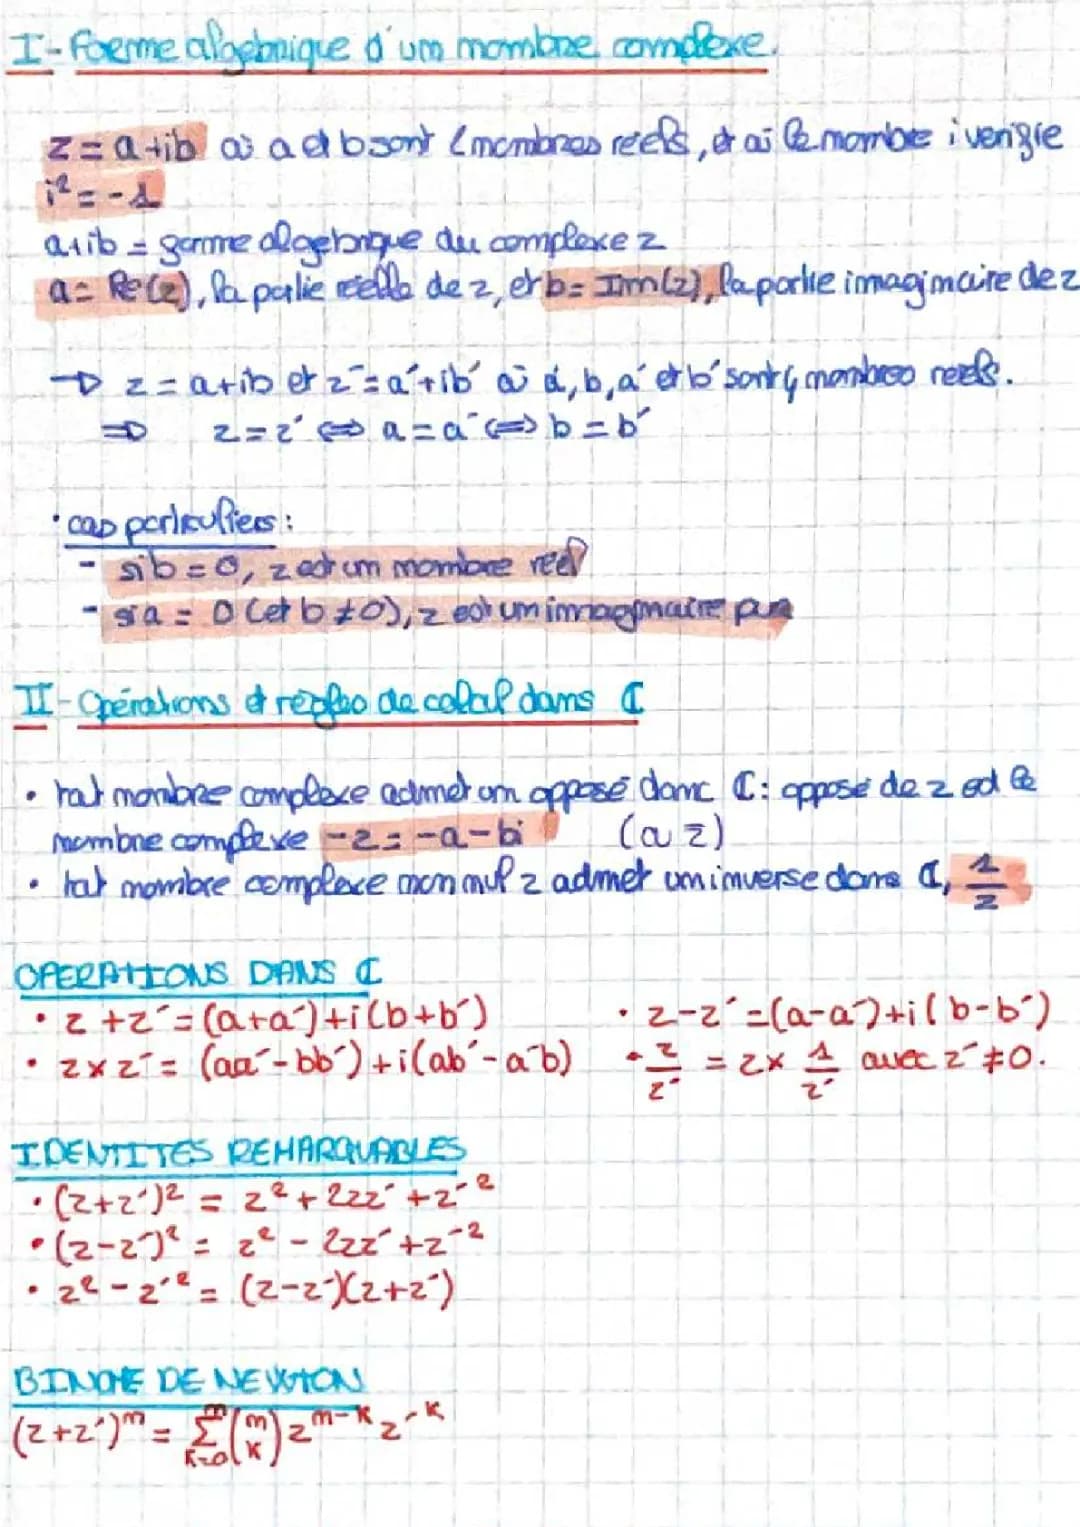 I - Forme algébrique d'un nombre complexe.
z = a+ib où a et b sont 2 nombres réels, et où le nombre i verifie
i² = -1
a+ib = forme algébrique du complexe z
a = Re(z), la partie réelle de z, et b = Im(z), la partie imaginaire de z
→ z = a+ib et z' = a'+ib' où a, b, a' et b' sont 4 nombres réels.
⇒ z = z' ⇔ a = a' ⇔ b = b'
• cas particuliers :
- si b = 0, z est un nombre réel
- si a = 0 (et b ≠ 0), z est un imaginaire pur
II - Opérations et règles de calcul dans ℂ
• tout nombre complexe admet un opposé dans ℂ : opposé de z est le
nombre complexe -z = -a-bi (ou z̅)
• tout nombre complexe non nul z admet un inverse dans ℂ, 1/z
OPERATIONS DANS ℂ
• z + z' = (a+a') + i(b+b') • z - z' = (a-a') + i(b-b')
• z × z' = (aa'-bb') + i(ab'-a'b) • z/z' = z × 1/z' avec z' ≠ 0.
IDENTITES REMARQUABLES
• (z+z')² = z² + 2zz' + z'²
• (z-z')² = z² - 2zz' + z'²
• z² - z'² = (z-z')(z+z')
BINOME DE NEWTON
(z+z')ⁿ = Σₖ₌₀ⁿ (n k) zⁿ⁻ᵏ z'ᵏ